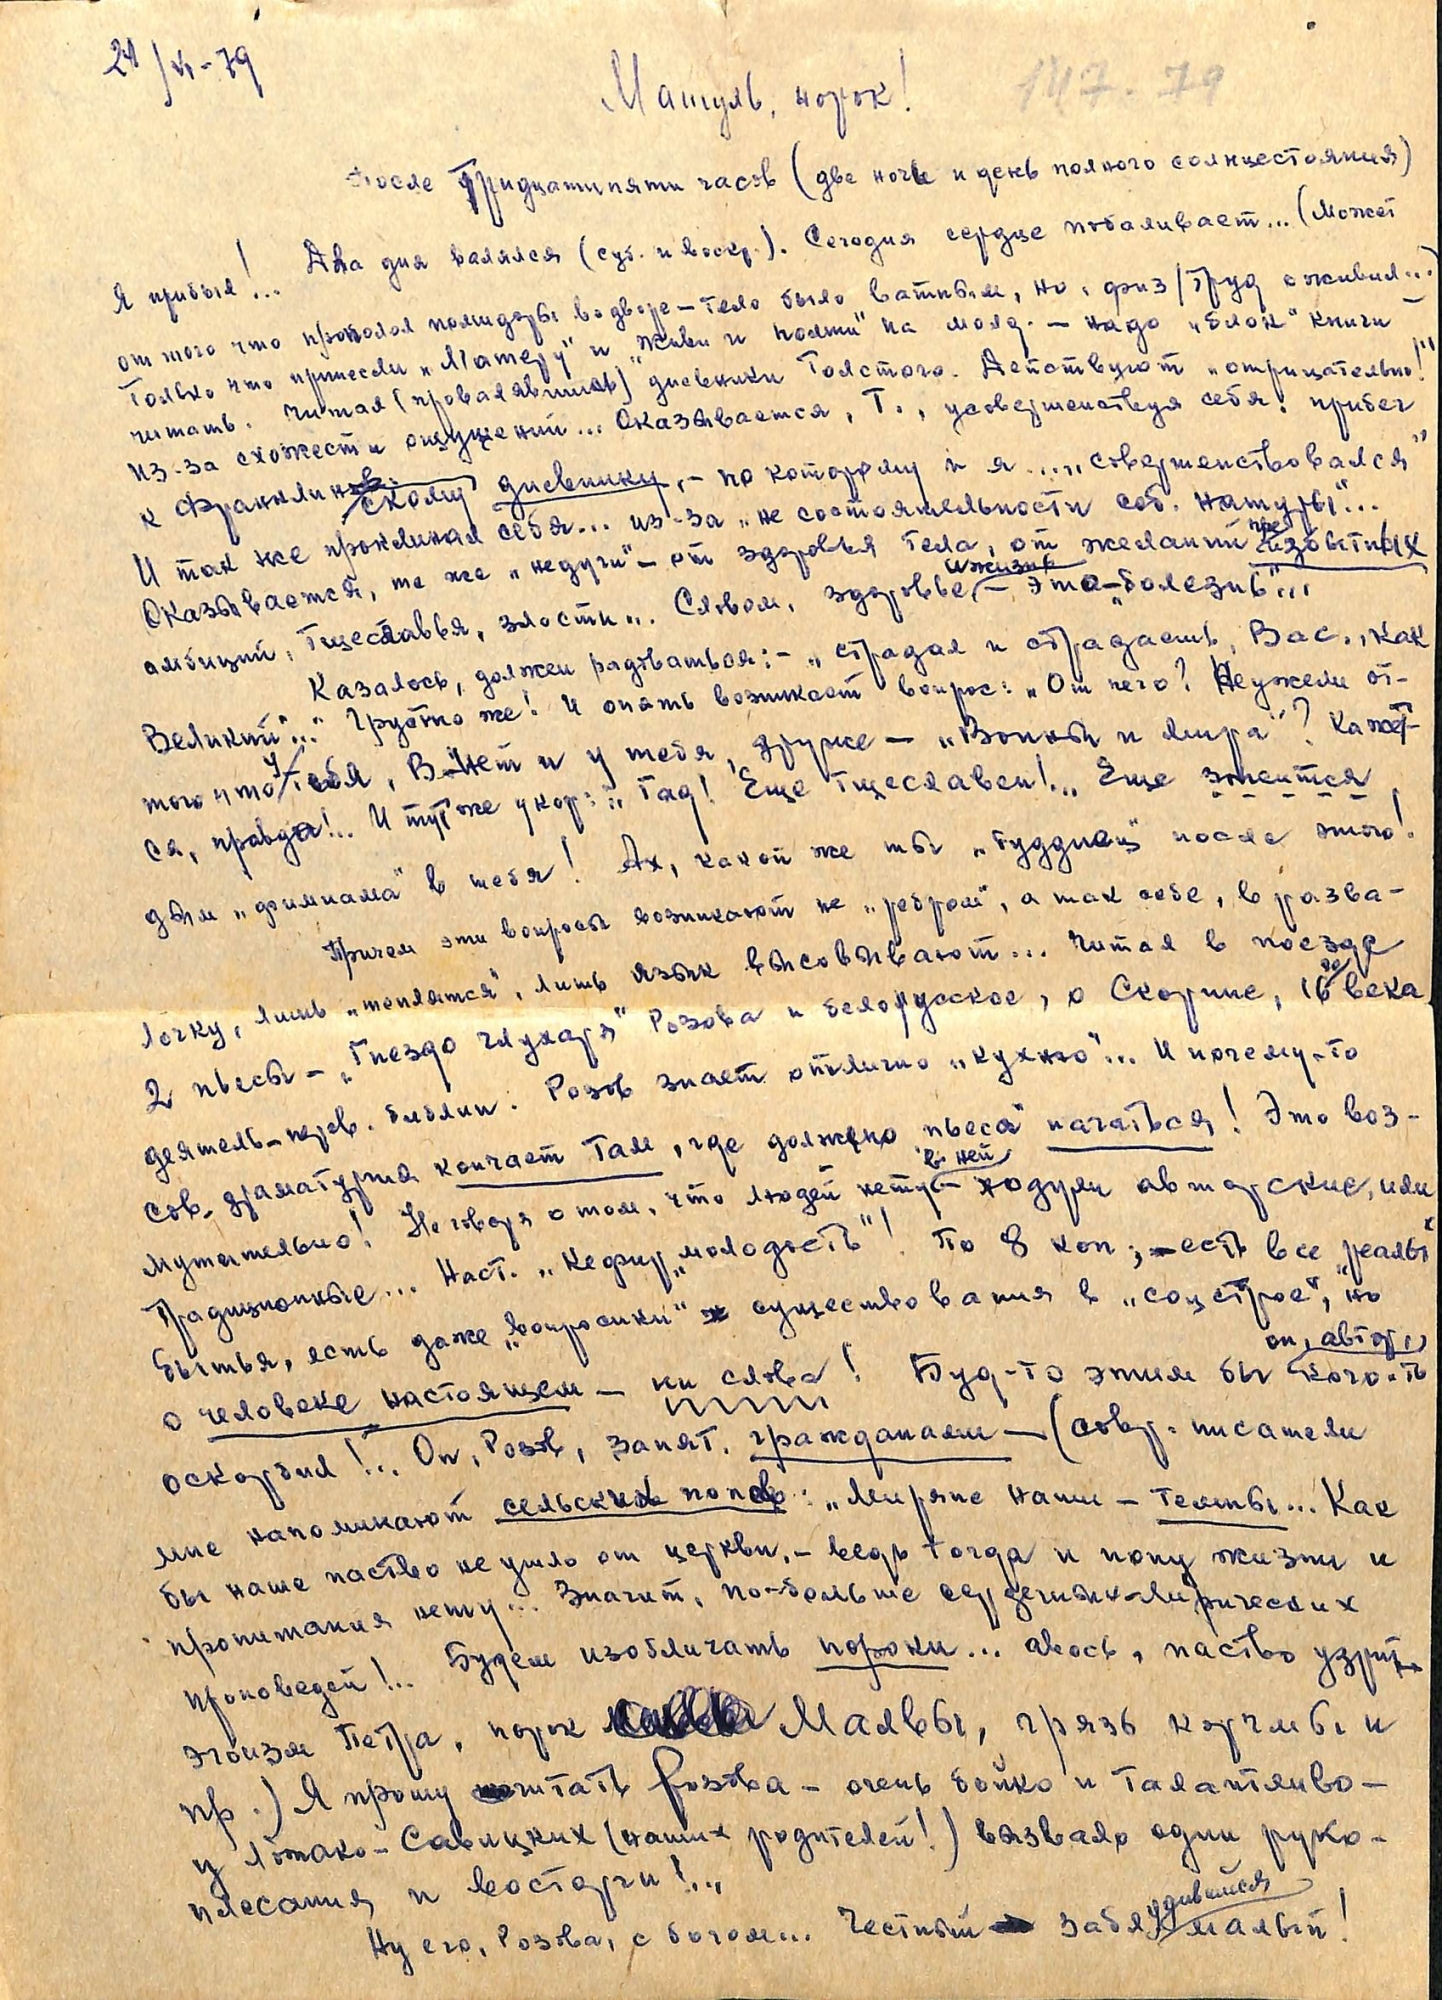 24/VI-79
Матуль, норок!
147.79
После тридцатипяти часов (две ночи и день полного солнцестояния)
Я прибыл!... Два дня валялся (суб. и воскр.). Сегодня сердце побаливает... (может
от того что прополол помидоры во дворе – тело было ватным, но, физ/труд оживил...)
Только что принесли „Матёру" и „Живи и помни" на молд. – надо „блок" книги
читать. Читал (провалявшись) дневники Толстого. Действуют „отрицательно!"
из-за схожести ощущений... Оказывается, Т., усовершенствуя себя, прибег
к Франклинскому дневнику, – по которому и я .... „совершенствовался"
И так же проклинал себя... из-за „не состоятельности соб. натуры"...
Оказывается, те же „недуги" – от здоровья тела, от желаний
амбиций, тщеславья, злости... Словом, здоровье и жизнь – это – „болезнь"...
Казалось, должен радоваться: – „страдал и страдаешь, Вас., как
Великий"..." Грустно же! И опять возникает вопрос: „От чего? Неужели от-
того что у тебя, В. – нет и у тебя, друже – „Войны и мира"? Кажет-
ся, правда!.. И тут же укор: „Гад! Еще тщеславен!.. Еще
дым „фимиама" в тебя! Ах, какой же ты „буддиец" после этого!
Причем эти вопросы возникают не „ребром", а так себе, в разва-
лочку, лишь „теплятся", лишь язык высовывают... Читал в поезде
2 пьесы – „Гнездо глухаря" Розова и белорусское, о Скорине, 16го века
деятель – перев. библии. Розов знает отлично „кухню"... И почему-то
сов. драматургия кончает там, где должно „пьеса" начаться! Это воз-
мутительно! Не говоря о том, что людей в ней нету – ходули авторские, или
традиционные... Наст. „Кефир „молодость"! По 8 коп; – есть все реалы"
бытья, есть даже „вопросики" существования в „соцстрое", но
о человеке настоящем – ни слова! Буд-то этим бы он, автор, кого-то
оскорбил!.. Он, Розов, занят, гражданами – (совр. писатели
мне напоминают сельских попов: „Миряне наши – темны... Как
бы наше паство не ушло от церкви, – ведь тогда и попу жизни и
пропитания нету... Значит, по-больше сердечно-лирических
проповедей!.. Будем изобличать пороки... авось, паство узрит
эгоизм Петра, порок Малвы, грязь корчмы и
пр.) Я прошу читать Розова – очень бойко и талантливо –
у Лотяко-Савицких (наших родителей!) вызвало одни руко-
плесания и восторги!..
Ну его, Розова, с богом... Честный удивлейся малый!